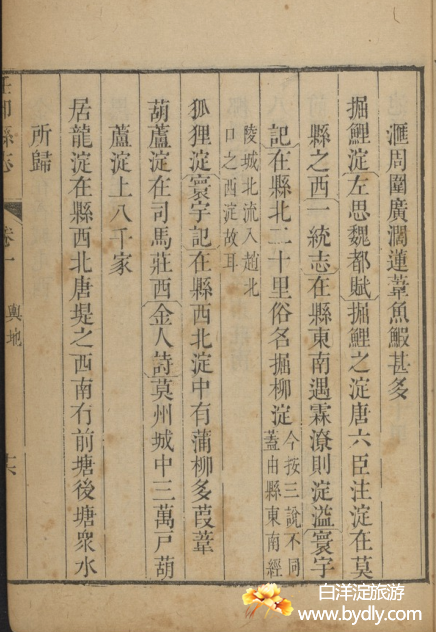 滙周圍廣濶蓮葦魚鰕甚多
掘鯉淀左思魏都賦掘鯉之淀唐六臣注淀在莫
縣之西一統志在縣東南遇霖潦則淀溢寰宇
記在縣北二十里俗名掘柳淀今按三說不同
蓋由縣東南經
陵城北流入趙北
口之西淀故耳
狐狸淀寰宇記在縣西北淀中有蒲柳多葭葦
葫蘆淀在司馬莊西金人詩莫州城中三萬戸葫
蘆淀上八千家
居龍淀在縣西北唐堤之西南有前塘後塘衆水
所歸
任邱縣志
卷一
輿地
白洋淀旅游
www.bydly.com